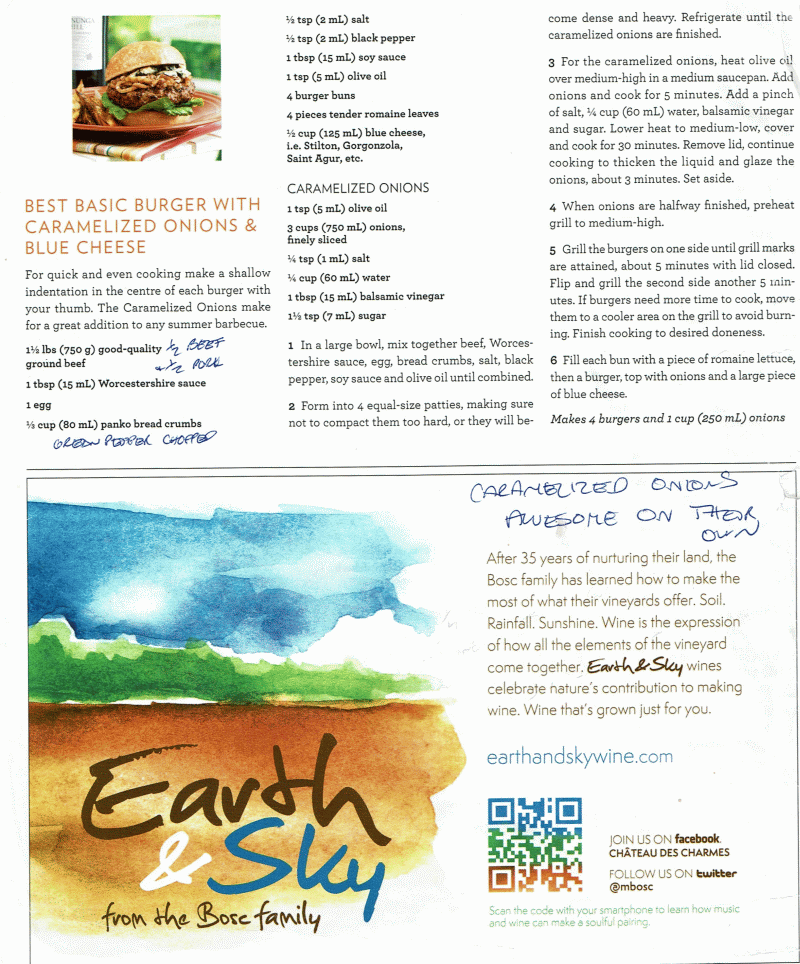 BEST BASIC BURGER WITH
CARAMELIZED ONIONS &
BLUE CHEESE
For quick and even cooking make a shallow
indentation in the centre of each burger with
your thumb. The Caramelized Onions make
for a great addition to any summer barbecue.
1½ lbs (750 g) good-quality ½ BEEF
ground beef + ½ PORK
1 tbsp (15 mL) Worcestershire sauce
1 egg
⅓ cup (80 mL) panko bread crumbs
GREEN PEPPER CHOPPED
½ tsp (2 mL) salt
½ tsp (2 mL) black pepper
1 tbsp (15 mL) soy sauce
1 tsp (5 mL) olive oil
4 burger buns
4 pieces tender romaine leaves
½ cup (125 mL) blue cheese,
i.e. Stilton, Gorgonzola,
Saint Agur, etc.
CARAMELIZED ONIONS
1 tsp (5 mL) olive oil
3 cups (750 mL) onions,
finely sliced
¼ tsp (1 mL) salt
¼ cup (60 mL) water
1 tbsp (15 mL) balsamic vinegar
1½ tsp (7 mL) sugar
1 In a large bowl, mix together beef, Worces-
tershire sauce, egg, bread crumbs, salt, black
pepper, soy sauce and olive oil until combined.
2 Form into 4 equal-size patties, making sure
not to compact them too hard, or they will be-
come dense and heavy. Refrigerate until the
caramelized onions are finished.
3 For the caramelized onions, heat olive oil
over medium-high in a medium saucepan. Add
onions and cook for 5 minutes. Add a pinch
of salt, ¼ cup (60 mL) water, balsamic vinegar
and sugar. Lower heat to medium-low, cover
and cook for 30 minutes. Remove lid, continue
cooking to thicken the liquid and glaze the
onions, about 3 minutes. Set aside.
4 When onions are halfway finished, preheat
grill to medium-high.
5 Grill the burgers on one side until grill marks
are attained, about 5 minutes with lid closed.
Flip and grill the second side another 5 min-
utes. If burgers need more time to cook, move
them to a cooler area on the grill to avoid burn-
ing. Finish cooking to desired doneness.
6 Fill each bun with a piece of romaine lettuce,
then a burger, top with onions and a large piece
of blue cheese.
Makes 4 burgers and 1 cup (250 mL) onions
CARAMELIZED ONIONS
AWESOME ON THEIR
OWN
After 35 years of nurturing their land, the
Bosc family has learned how to make the
most of what their vineyards offer. Soil.
Rainfall. Sunshine. Wine is the expression
of how all the elements of the vineyard
come together. Earth & Sky wines
celebrate nature's contribution to making
wine. Wine that's grown just for you.
earthandskywine.com
JOIN US ON facebook.
CHÂTEAU DES CHARMES
FOLLOW US ON twitter
@mbosc
Scan the code with your smartphone to learn how music
and wine can make a soulful pairing.
Earth
& Sky
from the Bosc family